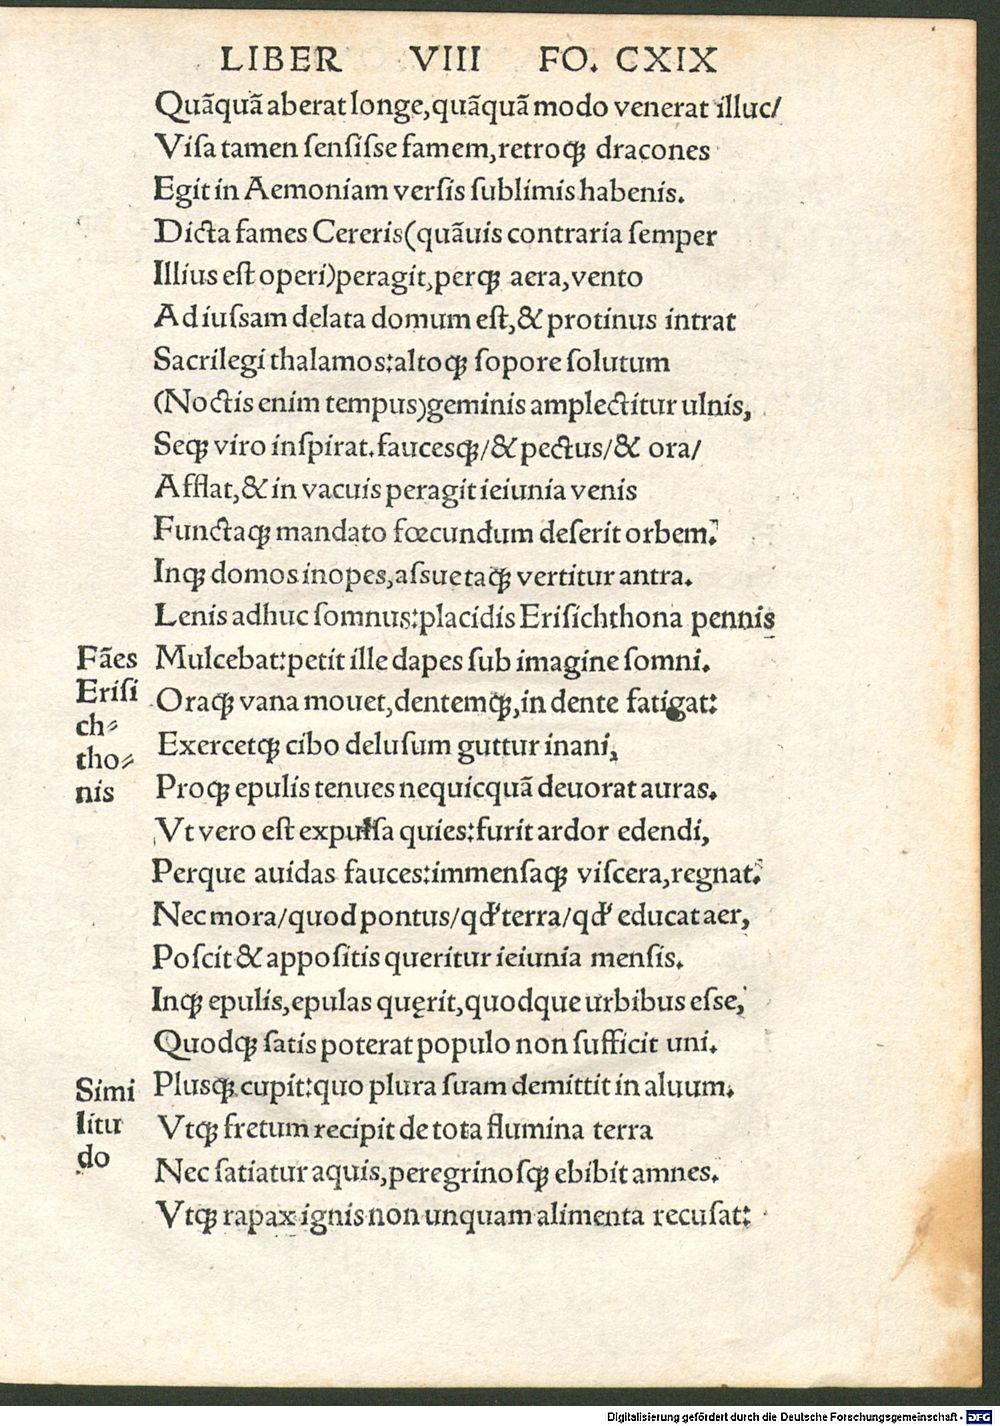 LIBER VIII FO. CXIX
Quãquã aberat longe, quãquã modo venerat illuc/
Viſa tamen ſenſiſſe famem, retroqꝫ dracones
Egit in Aemoniam verſis ſublimis habenis.
Dicta fames Cereris (quãuis contraria ſemper
Illius eſt operi) peragit, perqꝫ aera, vento
Ad iuſſam delata domum eſt, & protinus intrat
Sacrilegi thalamos: altoqꝫ ſopore ſolutum
(Noctis enim tempus) geminis amplectitur ulnis,
Seqꝫ viro inſpirat. faucesqꝫ/ & pectus/ & ora/
Afflat, & in vacuis peragit ieiunia venis
Functaqꝫ mandato fœcundum deſerit orbem.
Inqꝫ domos inopes, aſſuetaqꝫ vertitur antra.
Lenis adhuc ſomnus: placidis Eriſichthona pennis
Fães
Eriſi
ch⸗
tho⸗
nis
Mulcebat: petit ille dapes ſub imagine ſomni.
Oraqꝫ vana mouet, dentemqꝫ, in dente fatigat:
Exercetqꝫ cibo deluſum guttur inani,
Proqꝫ epulis tenues nequicquã deuorat auras.
Vt vero eſt expulſa quies: furit ardor edendi,
Perque auidas fauces: immenſaqꝫ viſcera, regnat.
Nec mora/ quod pontus/ qd' terra/ qd' educat aer,
Poſcit & appoſitis queritur ieiunia menſis.
Inqꝫ epulis, epulas quęrit, quodque urbibus eſſe,
Quodqꝫ ſatis poterat populo non ſufficit uni.
Simi
litu
do
Plusqꝫ cupit: quo plura ſuam demittit in aluum.
Vtqꝫ fretum recipit de tota flumina terra
Nec ſatiatur aquis, peregrinoſqꝫ ebibit amnes.
Vtqꝫ rapax ignis non unquam alimenta recuſat:
Digitalisierung gefördert durch die Deutsche Forschungsgemeinschaft - DFG